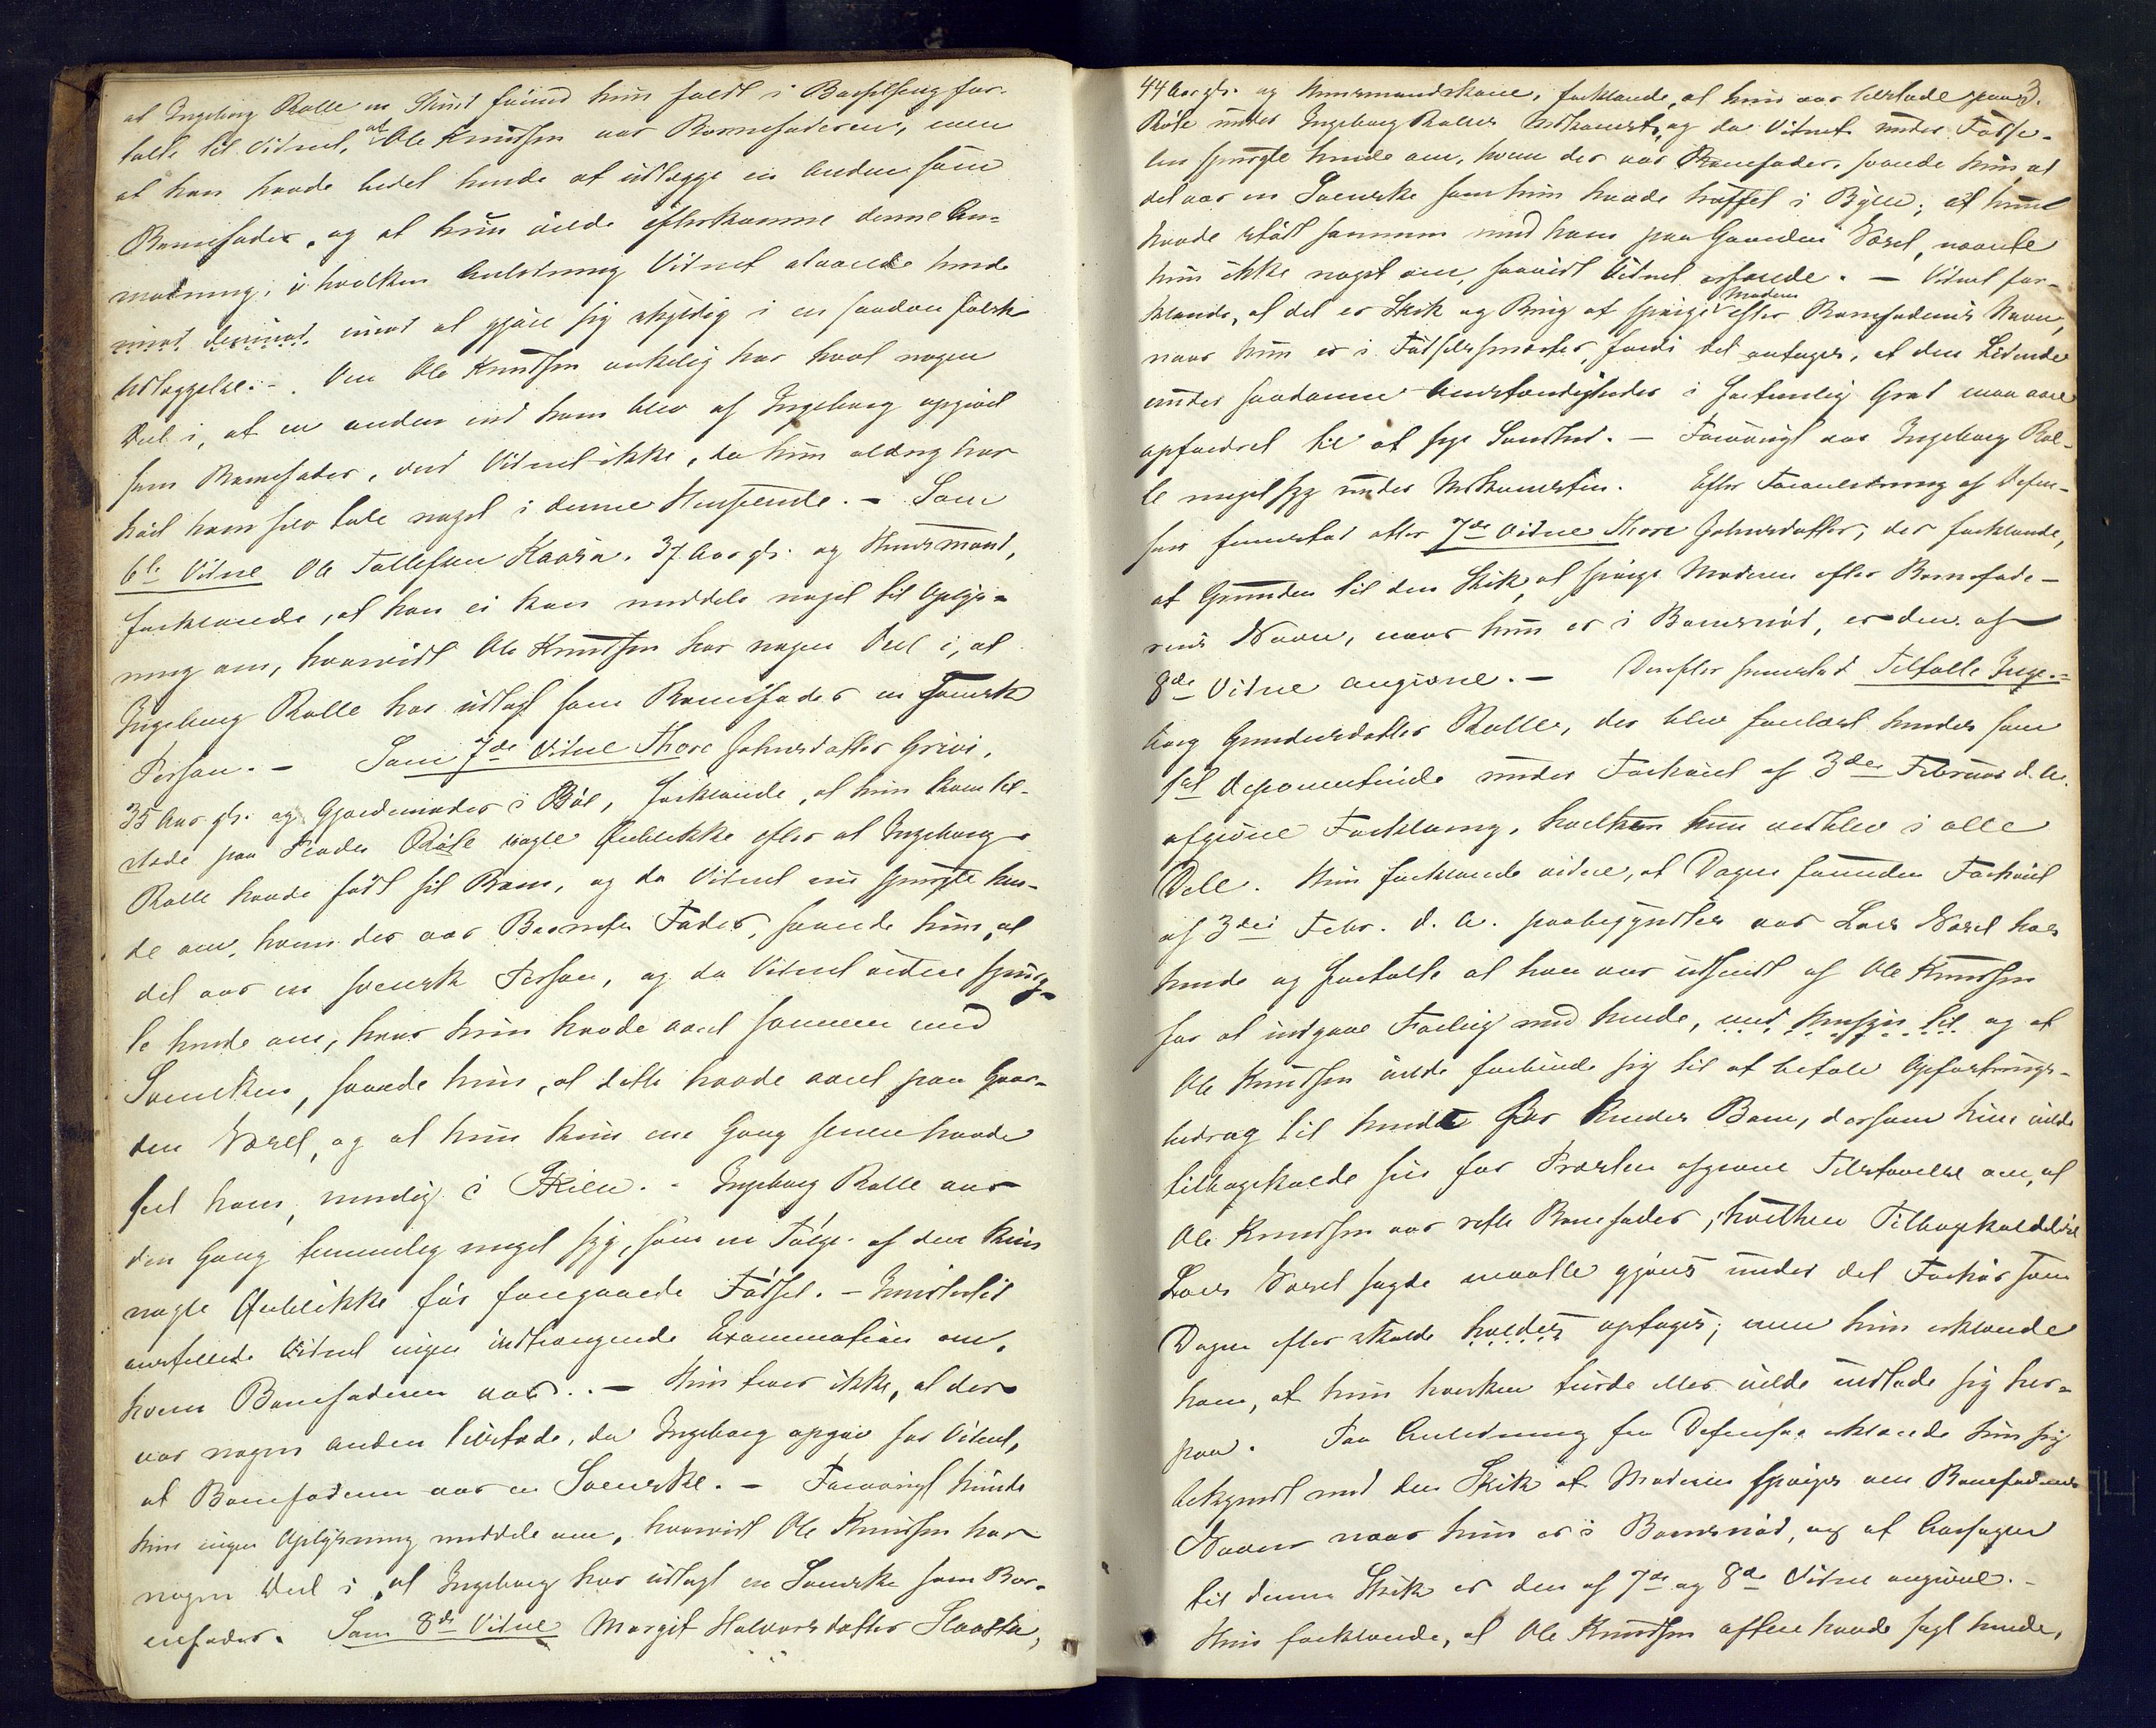 at Ingeborg Rolle en Stund førend hun faldt i Barselseng for-
talte til Vidnet, at Ole Knudsen var Barnefaderen, men
at han havde bedet hende at udlægge en Anden som
Barnefader, og at hun vilde efterkomme denne An-
modning, i hvilken Anledning Vidnet advarede hende
imod derimod imod at gjøre sig skyldig i en saadan falsk
Udlæggelse. - Om Ole Knudsen virkelig har havt nogen
Deel i, at en anden end ham blev af Ingeborg opgivet
som Barnefader, ved Vidnet ikke, da hun aldrig har
hørt ham selv tale noget i denne Henseende. - Som
6te Vidne Ole Tollefsen Kaasa, 37 Aar gl. og Huusmand,
forklarede, at han ei kan meddele noget til Oplys-
ning om, hvorvidt Ole Knudsen har nogen Deel i, at
Ingeborg Rolle har udlagt som Barnefader en svensk
Person. - Som 7de Vidne Thore Johnsdatter Grivi,
35 Aar gl. og Gjordemoder i Bø, forklarede, at hun kom til-
stede paa Pladsen nogle Øieblikke efter at Ingeborg
Rolle havde født sit Barn, og da Vidnet nu spurgte hen-
de om, hvem der var Barnets Fader, svarede hun, at
det var en svensk Person, og da Vidnet videre spurg-
te hende om, hvor hun havde været sammen med
Svensken, svarede hun, at dette havde været paa Gaar-
den Norel, og at hun kun een Gang senere havde
seet ham, nemlig i Skien. - Ingeborg Rolle var
den Gang temmelig meget syg, som en Følge af den kun
nogle Øieblikke før foregaaede Fødsel. - Imidlertid
anstillede Vidnet ingen indtrængende Examination om,
hvem Barnefaderen var. - Hun troer ikke, at der
var nogen anden tilstede, da Ingeborg opgav for Vidnet,
at Barnefaderen var en Svenske. - Forøvrigt kunde
hun ingen Oplysning meddele om, hvorvidt Ole Knudsen har
nogen Deel i, at Ingeborg har udlagt en Svenske som Bar-
nefader. Som 8de Vidne Margit Halvorsdatter
44 Aar gl. og Huusmandskone, forklarede, at hun var tilstede paa 3.
under Ingeborg Rolles Nedkomst, og da Vidnet under Føds-
len spurgte hende om, hvem der var Barnefader, svarede hun at
det var en Svenske som hun havde truffet i Byen; at hun
havde staaet sammen med ham paa Gaarden Norel, nævnte
hun ikke noget om, saavidt Vidnet erfarede. - Vidnet for-
klarede, at det er Skik og Brug at spørge Moderen efter Barnefaderens Navn,
naar hun er i Fødselssmerter, fordi det antages, at den Lidende
under saadanne Omstændigheder i fortrinlig Grad maa være
opfordret til at sige Sandhed. - Forøvrigt var Ingeborg Rol-
le meget syg under Nedkomsten. Efter Foranledning af Defen-
sor fremstod atter 7de Vidne Thore Johnsdatter, der forklarede,
at Grunden til den Skik, at spørge Moderen efter Barnefade-
rens Navn, naar hun er i Barnsnød, er den af
8de Vidne angivne. - Derefter fremstod Tiltalte Inge-
borg Gundersdatter Rolle, der blev forelæst hendes som
1st Deponentinde under Forhøret af 3die Februar d. A.
afgivne Forklaring, hvilken hun vedblev i alle
Dele. Hun forklarede videre, at Dagen førenden Forhøret
af 3die Febr. d. A. paabegyndtes var Lars Norel hos
hende og fortalte at han var udsendt af Ole Knudsen
for at indgaae Forlig med hende, med Hensyn til og at
Ole Knudsen vilde forbinde sig til at betale Opfostrings-
bidrag til hende for hendes Barn, dersom hun vilde
tilbagekalde sin for Præsten afgivne Tilstaaelse om, at
Ole Knudsen var rette Barnefader; hvilken Tilbagekaldelse
Lars Norel sagde maatte gjøres under det Forhør som
Dagen efter skulde holdes optages; men hun erklærede
ham, at hun hverken turde eller vilde indlade sig her-
paa. Paa Anledning fra Defensor erklærede hun sig
bekjendt med den Skik at Moderen spørges om Barnefaderens
Navn naar hun er i Barnsnød, og at Aarsagen
til denne Skik er den af 7de og 8de Vidne angivne. -
Hun forklarede, at Ole Knudsen oftere havde sagt hende,